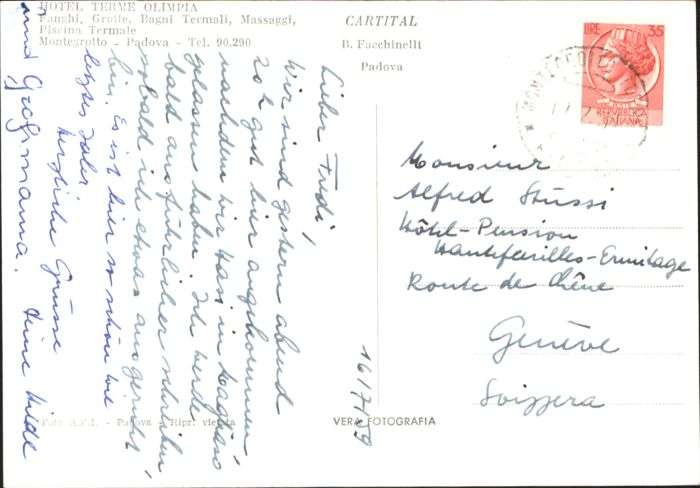 HOTEL TERME OLIMPIA
Fanghi, Grotte, Bagni Termali, Massaggi,
Piscina Termale
Montegrotto - Padova - Tel. 90.290
CARTITAL
B. Facchinelli
Padova
LIRE 35
REPVBBLICA
ITALIANA
MONTEGROTTO
Lieber Fredi,
Wir sind gestern abend
20h gut hier angekommen
nachdem wir Hasi in
gelassen haben. Ich werde
bald ausführlicher schreiben
sobald ich etwas ausgeruht
bin. Es ist hier so schön wie
letztes Jahr.
Herzliche Grüsse
Deine Hilde
und Grossmama.
16/7/59
Monsieur
Alfred Stüssi
Hôtel-Pension
Hautefeuilles-Ermitage
Route de Chêne
Genève
Svizzera
Padova - Ripr. vietata
VERA FOTOGRAFIA